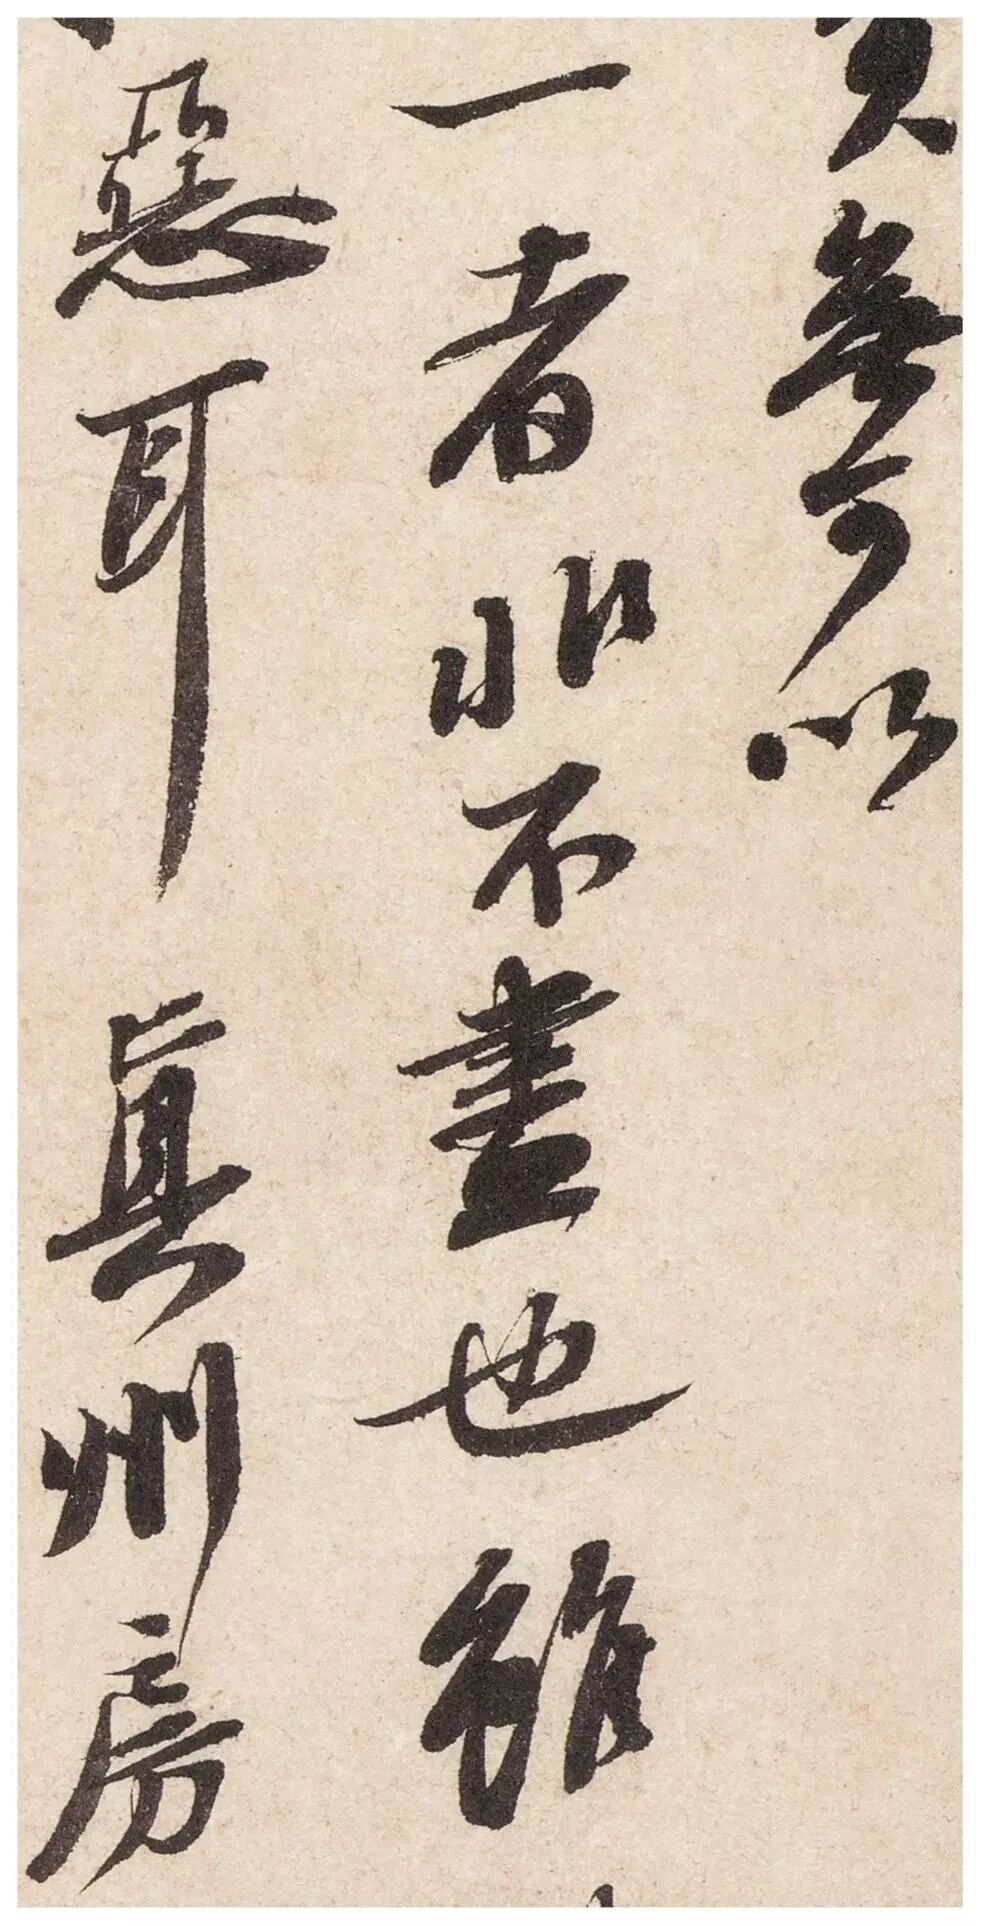 無可以
一者非不盡也雖
惡耳 真州房